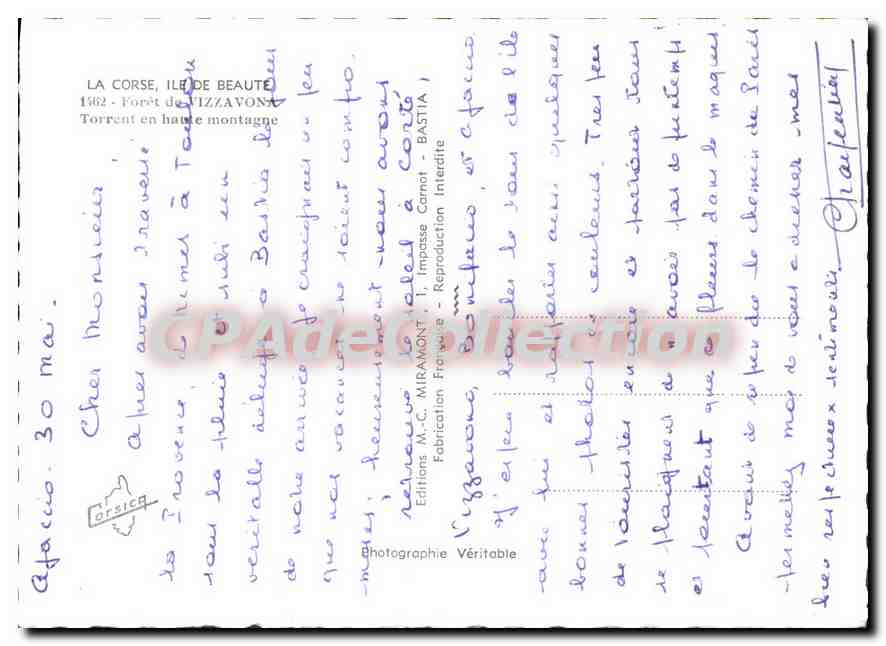 LA CORSE, ILE DE BEAUTÉ
1562 - Forêt de VIZZAVONA
Torrent en haute montagne
CORSICA
Editions M.-C. MIRAMONT, 1, Impasse Carnot - BASTIA
Fabrication Française - Reproduction Interdite
Photographie Véritable
CPAdeCollection
Ajaccio. 30 mai.
Cher Monsieur
Après avoir traversé
la Provence, de Nîmes à Toulon
sous la pluie et subi un
véritable déluge à Bastia le jour
de notre arrivée je craignais un peu
que nos vacances ne soient compro.
mises, heureusement nous avons
retrouvé le soleil à Corté,
Vizzavona, Bonifacio, et Ajaccio.
J'espère boucler le tour de l'ile
avec lui et rapporter ainsi quelques
bonnes photos en couleurs. Très peu
de touristes encore et partout tous
se plaignent de n'avoir pas de printemps
et pourtant que de fleurs dans le maquis.
Avant de reprendre le chemin de Paris
permettez moi de vous adresser mes
bien respectueux sentiments.